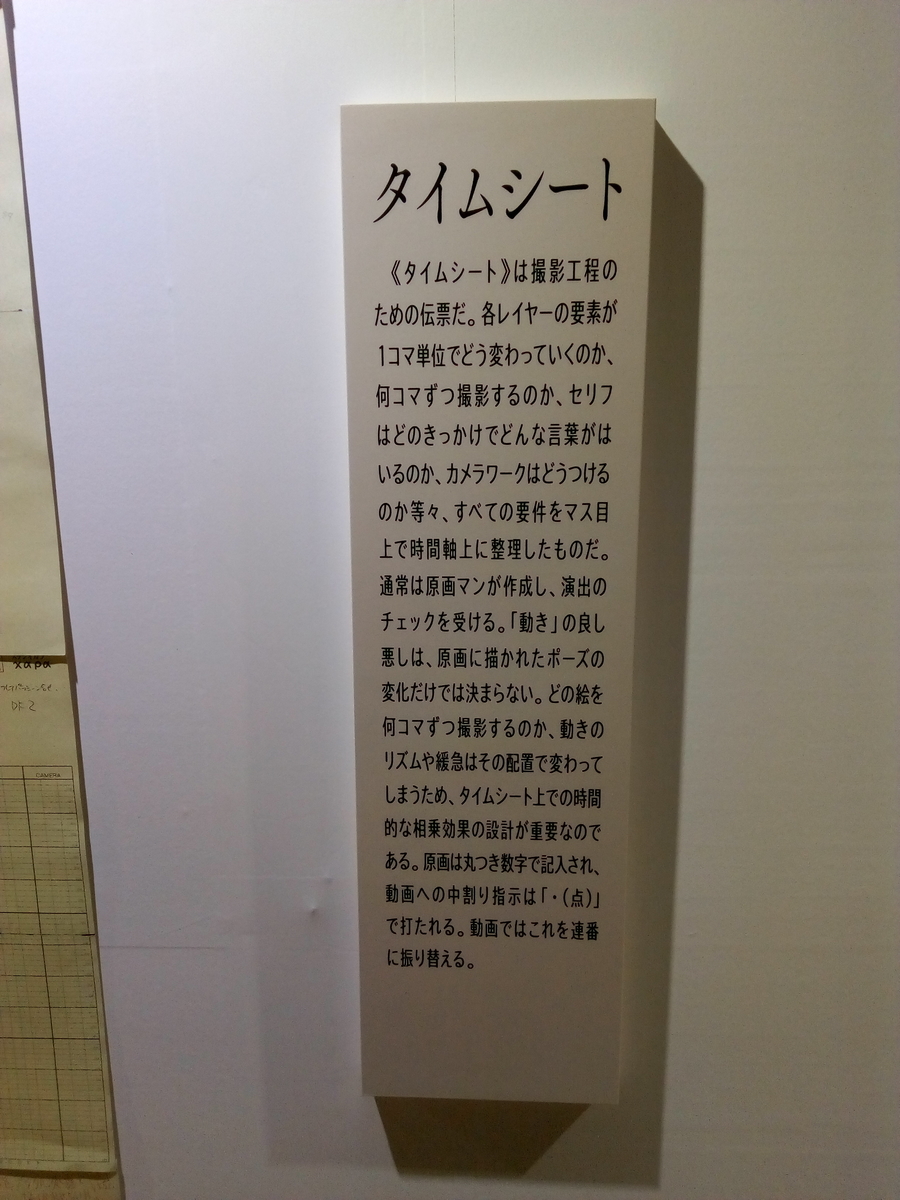 タイムシート
《タイムシート》は撮影工程の
ための伝票だ。各レイヤーの要素が
1コマ単位でどう変わっていくのか、
何コマずつ撮影するのか、セリフ
はどのきっかけでどんな言葉がは
いるのか、カメラワークはどうつける
のか等々、すべての要件をマス目
上で時間軸上に整理したものだ。
通常は原画マンが作成し、演出の
チェックを受ける。「動き」の良し
悪しは、原画に描かれたポーズの
変化だけでは決まらない。どの絵を
何コマずつ撮影するのか、動きの
リズムや緩急はその配置で変わって
しまうため、タイムシート上での時間
的な相乗効果の設計が重要なので
ある。原画は丸つき数字で記入され、
動画への中割り指示は「・(点)」
で打たれる。動画ではこれを連番
に振り替える。
CAMERA